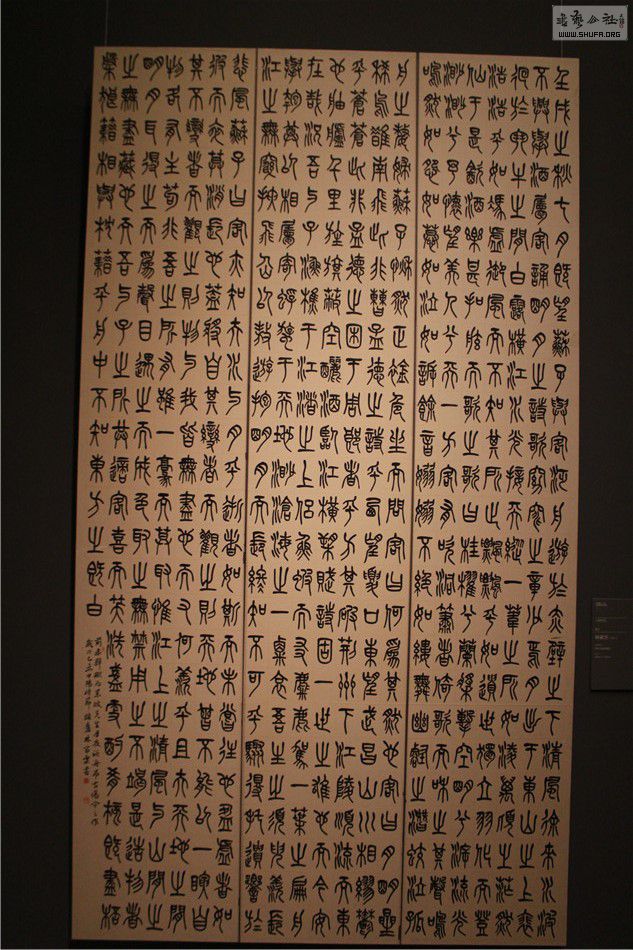 壬戌之秋七月既望蘇子與客泛舟遊於赤壁之下清風徐來水波
不興舉酒屬客誦明月之詩歌窈窕之章少焉月出於東山之上徘
徊於斗牛之間白露橫江水光接天縱一葦之所如凌萬頃之茫然
浩浩乎如馮虛御風而不知其所止飄飄乎如遺世獨立羽化而登
仙於是飲酒樂甚扣舷而歌之歌曰桂櫂兮蘭槳擊空明兮泝流光
渺渺兮予懷望美人兮天一方客有吹洞簫者倚歌而和之其聲嗚
嗚然如怨如慕如泣如訴餘音嫋嫋不絕如縷舞幽壑之潛蛟泣孤
舟之嫠婦蘇子愀然正襟危坐而問客曰何為其然也客曰月明星
稀烏鵲南飛此非曹孟德之詩乎西望夏口東望武昌山川相繆鬱
乎蒼蒼此非孟德之困於周郎者乎方其破荊州下江陵順流而東
也舳艫千里旌旗蔽空釃酒臨江橫槊賦詩固一世之雄也而今安
在哉況吾與子漁樵於江渚之上侶魚蝦而友麋鹿駕一葉之扁舟
舉匏樽以相屬寄蜉蝣於天地渺滄海之一粟哀吾生之須臾羨長
江之無窮挾飛仙以遨遊抱明月而長終知不可乎驟得託遺響於
悲風蘇子曰客亦知夫水與月乎逝者如斯而未嘗往也盈虛者如
彼而卒莫消長也蓋將自其變者而觀之則天地曾不能以一瞬自
其不變者而觀之則物與我皆無盡也而又何羨乎且夫天地之間
物各有主苟非吾之所有雖一毫而莫取惟江上之清風與山間之
明月耳得之而為聲目遇之而成色取之無禁用之不竭是造物者
之無盡藏也而吾與子之所共適客喜而笑洗盞更酌肴核既盡杯
盤狼藉相與枕藉乎舟中不知東方之既白
WWW.SHUFA.ORG